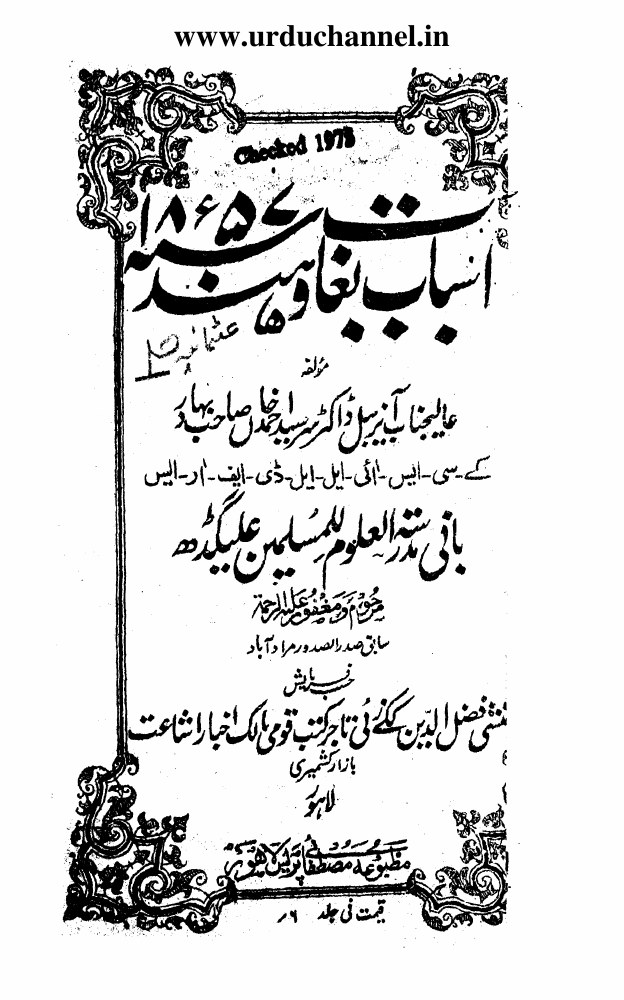 www.urduchannel.in
Checked 1973
اسباب بغاوت ہند ۱۸۵۷ء
عثمانیہ
مؤلفہ
عالیجناب آنریبل ڈاکٹر سر سید احمد خاں صاحب بہادر
کے-سی-ایس-آئی-ایل-ایل-ڈی-ایف-آر-ایس
بانی مدرستہ العلوم للمسلمین علیگڈھ
مرحوم و مغفور علیہ الرحمۃ
سابق صدر الصدور مراد آباد
حسب فرمایش
منشی فضل الدین ککے زئی تاجر کتب قومی مالک اخبار اشاعت
بازار کشمیری
لاہور
مطبوعہ مصطفائی پریس لاہور
قیمت فی جلد ۶؍